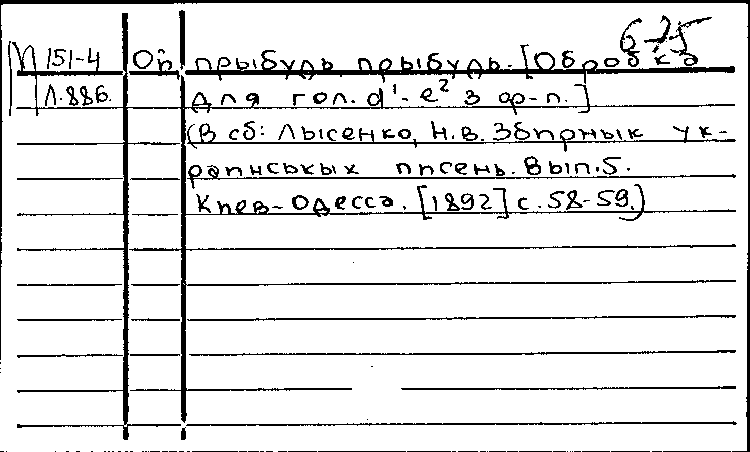 675
М 151-4 Ой, прыбудь, прыбудь. [Обробка
Л.886. для гол. d¹-e² з ф-п.]
(В сб: Лысенко, Н.В. Збирнык ук-
раинськых писень. Вып.5.
Киев-Одесса. [1892] с.58-59.)